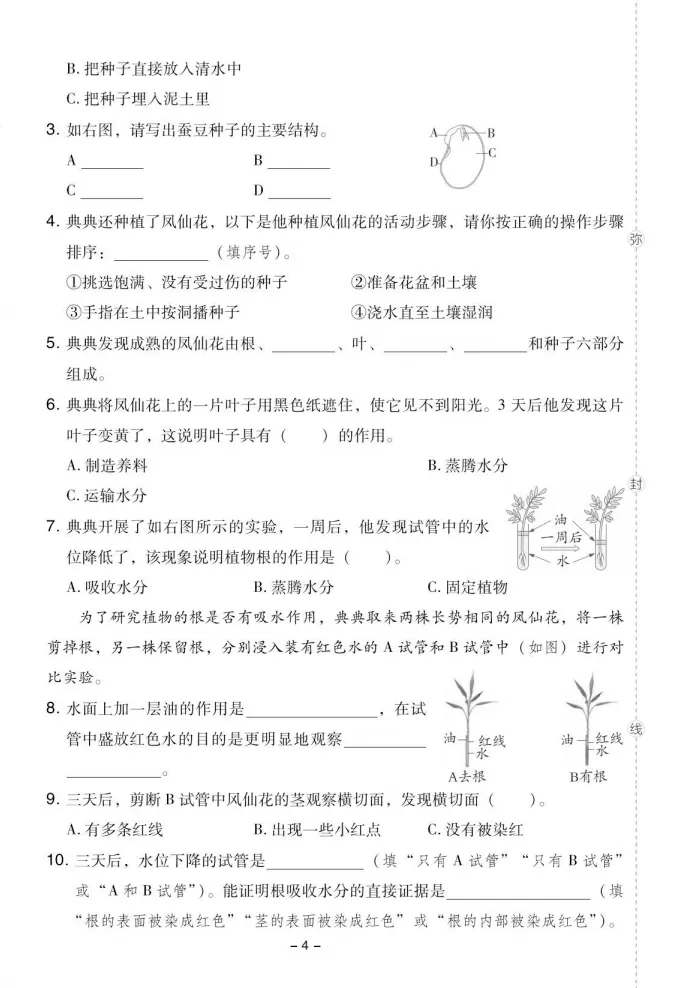 B. 把种子直接放入清水中
C. 把种子埋入泥土里
3. 如右图，请写出蚕豆种子的主要结构。
A ________ B ________
C ________ D ________
A B C D
4. 典典还种植了凤仙花，以下是他种植凤仙花的活动步骤，请你按正确的操作步骤
排序：____________（填序号）。
①挑选饱满、没有受过伤的种子 ②准备花盆和土壤
③手指在土中按洞播种子 ④浇水直至土壤湿润
5. 典典发现成熟的凤仙花由根、________、叶、________、________和种子六部分
组成。
6. 典典将凤仙花上的一片叶子用黑色纸遮住，使它见不到阳光。3 天后他发现这片
叶子变黄了，这说明叶子具有（　　）的作用。
A. 制造养料 B. 蒸腾水分
C. 运输水分
7. 典典开展了如右图所示的实验，一周后，他发现试管中的水
位降低了，该现象说明植物根的作用是（　　）。
油
一周后
水
A. 吸收水分 B. 蒸腾水分 C. 固定植物
为了研究植物的根是否有吸水作用，典典取来两株长势相同的凤仙花，将一株
剪掉根，另一株保留根，分别浸入装有红色水的 A 试管和 B 试管中（如图）进行对
比实验。
8. 水面上加一层油的作用是________________，在试
管中盛放红色水的目的是更明显地观察__________
____________。
油 红线 油 红线
水 水
A去根 B有根
9. 三天后，剪断 B 试管中风仙花的茎观察横切面，发现横切面（　　）。
A. 有多条红线 B. 出现一些小红点 C. 没有被染红
10. 三天后，水位下降的试管是____________（填“只有 A 试管”“只有 B 试管”
或“A 和 B 试管”）。能证明根吸收水分的直接证据是__________________（填
“根的表面被染成红色”“茎的表面被染成红色”或“根的内部被染红色”）。
– 4 –
弥
封
线